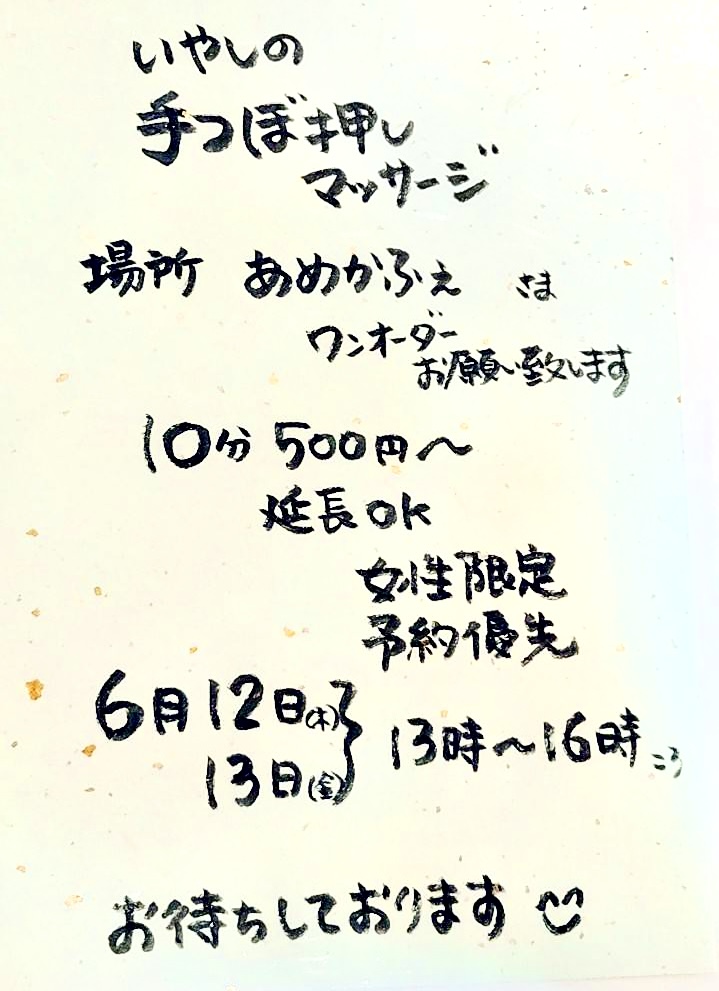 いやしの
手つぼ押し
マッサージ
場所 あめかふぇ さま
ワンオーダー
お願い致します
10分 500円〜
延長OK
女性限定
予約優先
6月12日(木)
13日(金)
13時〜16時ころ
お待ちしております